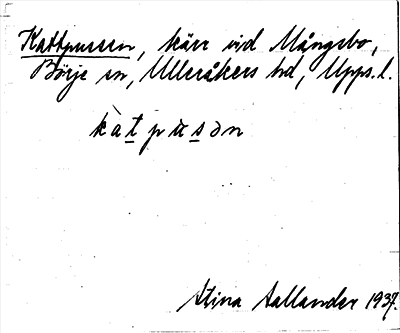 Kattpussen, kärr vid Mångsbo,
Börje sn, Ulleråkers hd, Upps. l.
kàt pùsən
Stina Sallander 1937.